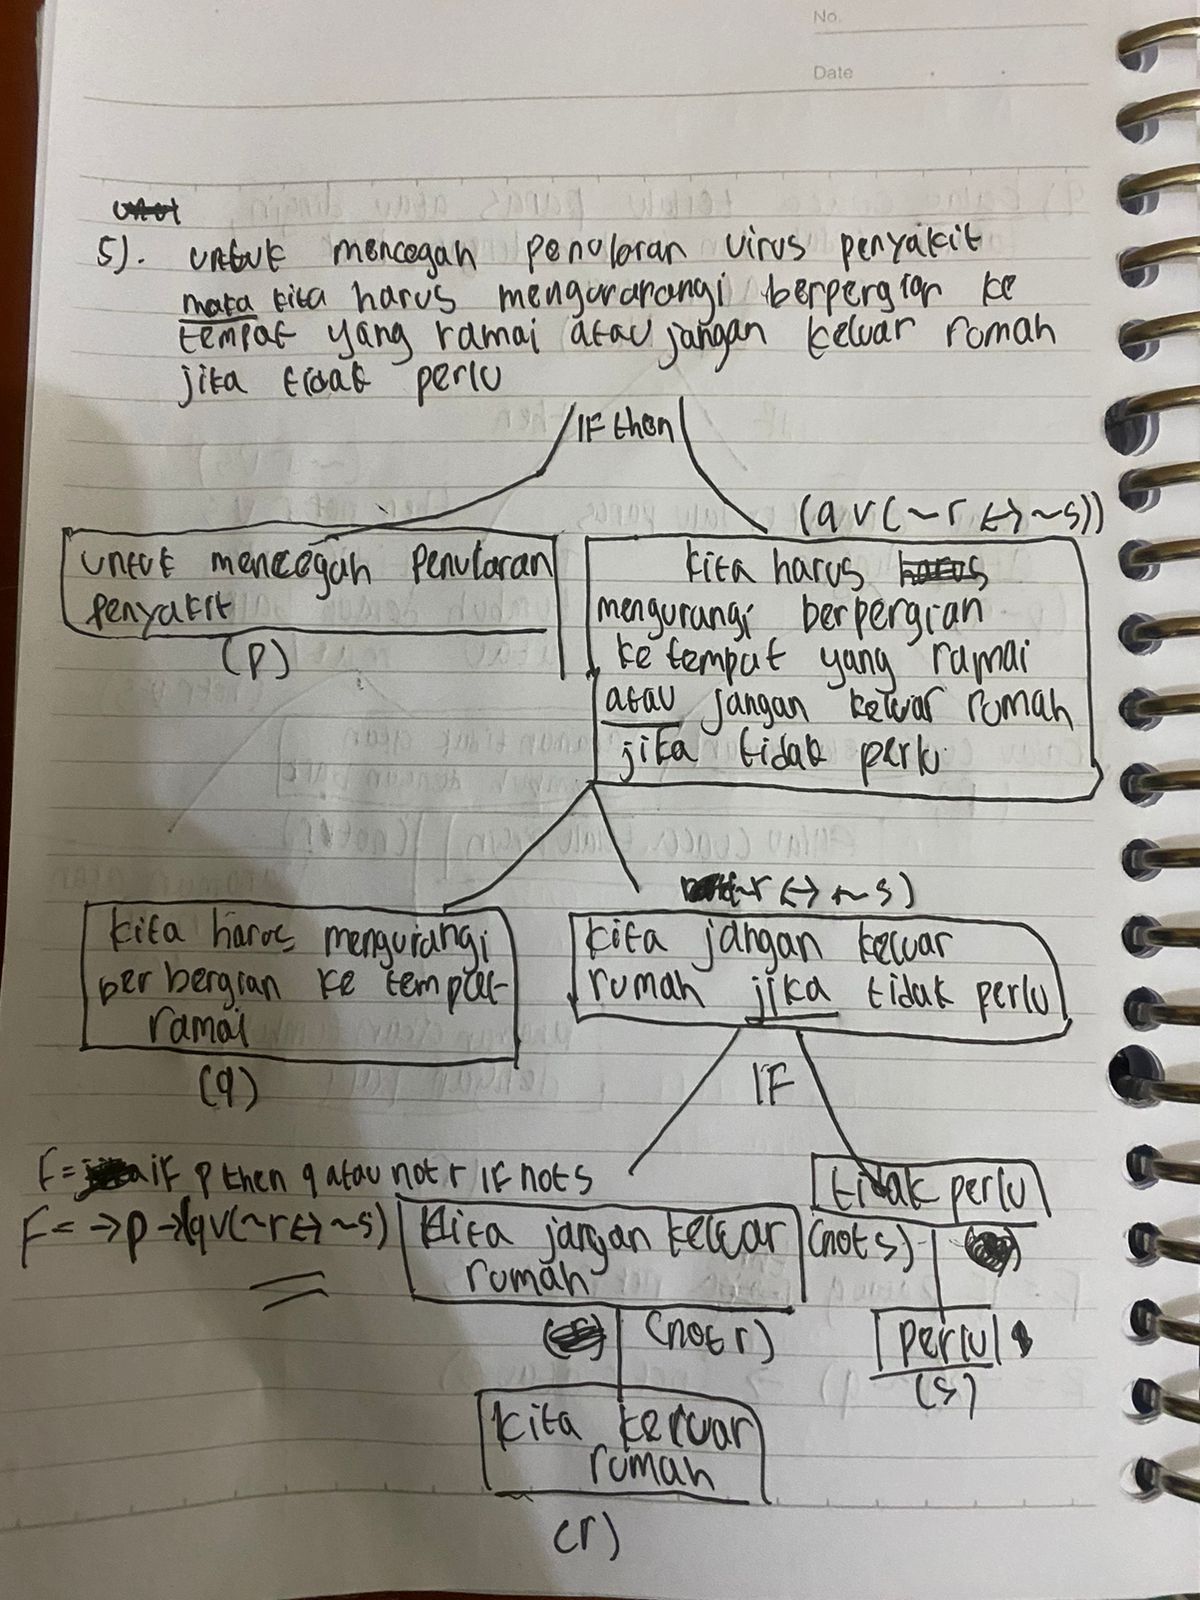 No.
Date
5). untuk mencegah penularan virus penyakit
maka kita harus mengurarangi berpergian ke
tempat yang ramai atau jangan keluar rumah
jika tidak perlu
IF then
(q v (~r ↔ ~s))
untuk mencegah penularan
penyakit
(p)
kita harus harus
mengurangi berpergian
ke tempat yang ramai
atau jangan keluar rumah
jika tidak perlu
~r ↔ ~s)
kita harus mengurangi
berbergian ke tempat
ramai
(q)
kita jangan keluar
rumah jika tidak perlu
IF
F = if p then q atau not r IF not s
F = → p → (q v (~r ↔ ~s)
tidak perlu
(not s)
kita jangan keluar
rumah
(not r)
perlu
(s)
kita keluar
rumah
(r)